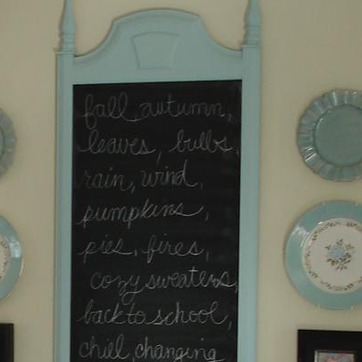 fall, autumn,
leaves, bulbs,
rain, wind,
pumpkins,
pies, fires,
cozy sweaters,
back to school,
chill, changing